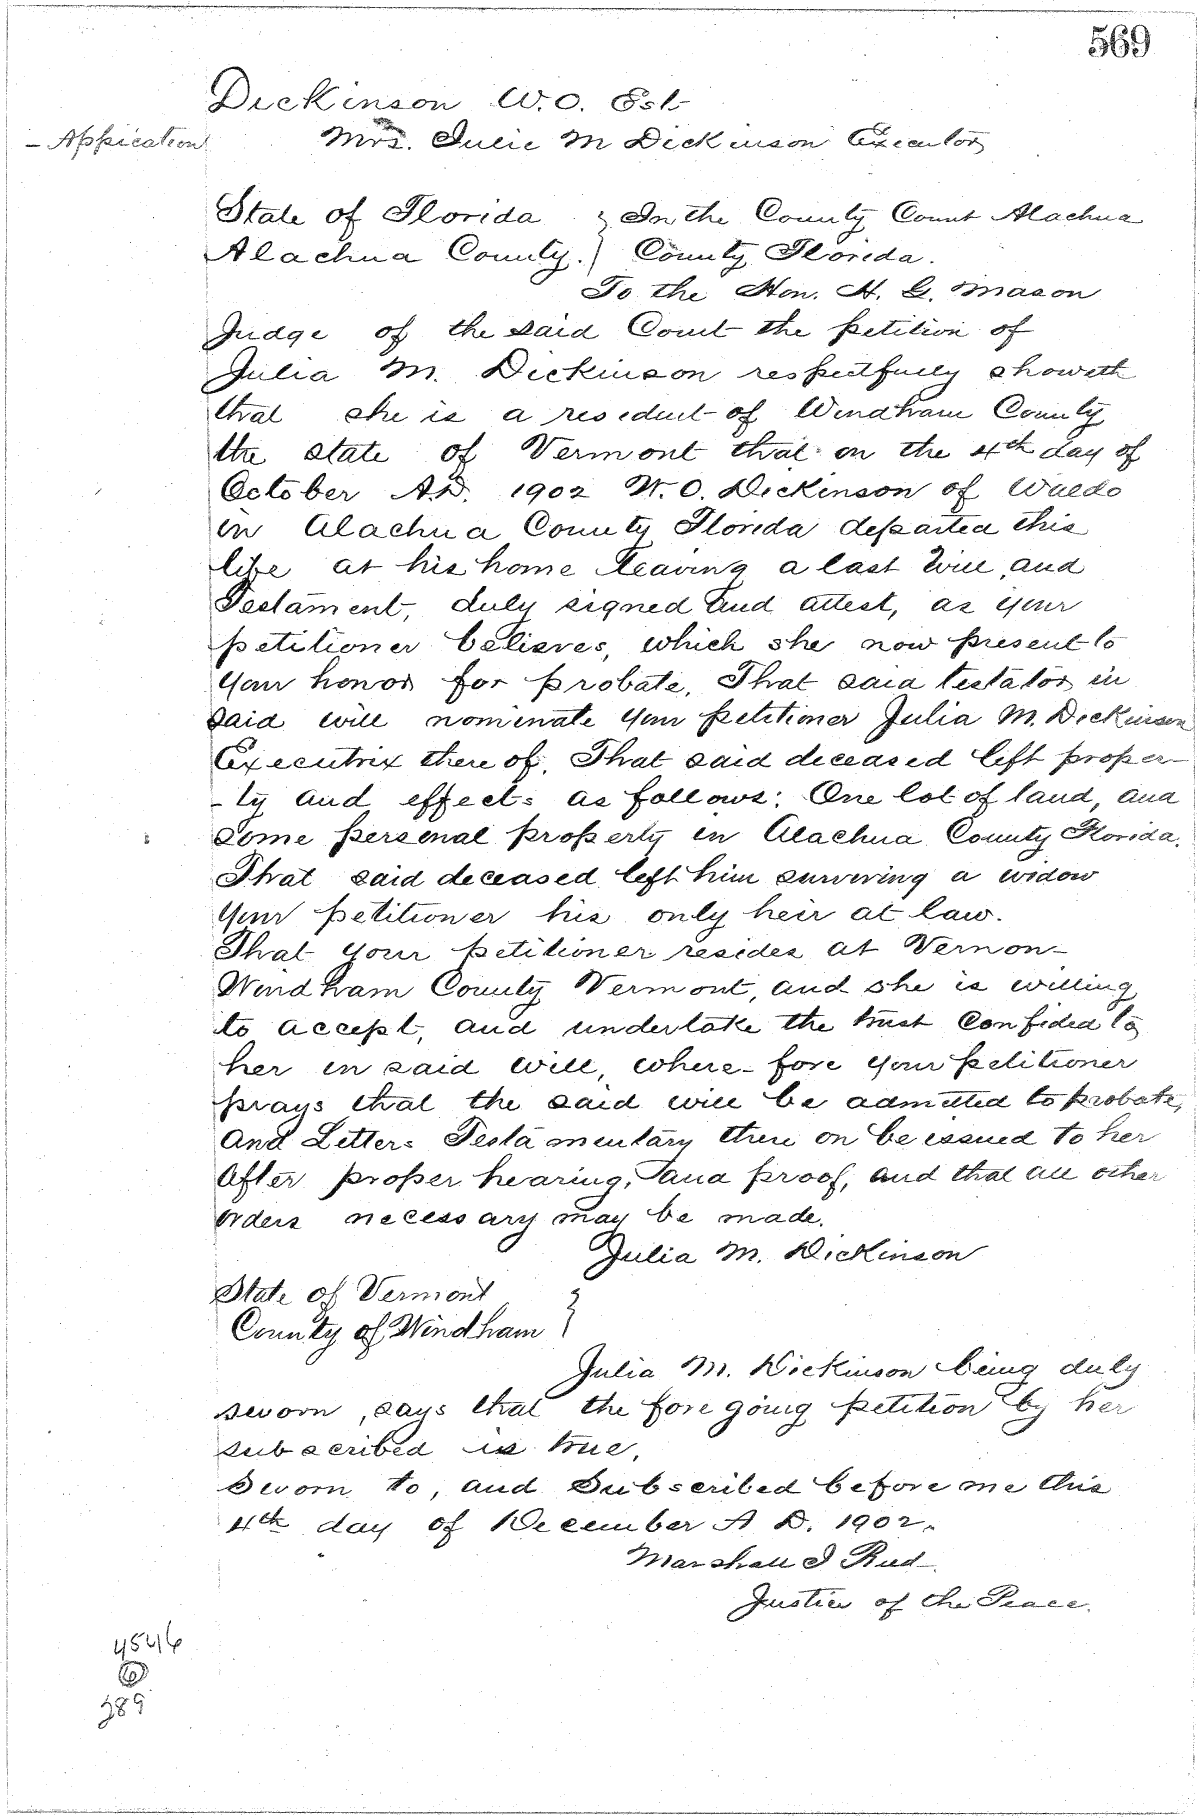 569
Dickinson W.O. Est
- Appication
Mrs. Julie M Dickinson Executor
State of Florida } In the County Court Alachua
Alachua County. } County Florida.
To the Hon. H. G. Mason
Judge of the said Court the petition of
Julia M. Dickinson respectfully showeth
that she is a resident of Windham County
the state of Vermont that on the 4th day of
October A.D. 1902 W. O. Dickinson of Waldo
in Alachua County Florida departed this
life at his home leaving a last Will, and
Testament, duly signed and attest, as your
petitioner believes, which she now present to
your honor for probate. That said testator in
said will nominate your petitioner Julia M. Dickinson
Executrix there of. That said deceased left proper-
- ty and effects as follows: One lot of land, and
some personal property in Alachua County Florida.
That said deceased left him surviving a widow
your petitioner his only heir at law.
That your petitioner resides at Vernon-
Windham County Vermont, and she is willing
to accept, and undertake the trust confided to
her in said will, where-fore your petitioner
prays that the said will be admitted to probate,
and Letters Testamentary there on be issued to her
after proper hearing, and proof, and that all other
orders necessary may be made.
Julia M. Dickinson
State of Vermont }
County of Windham }
Julia M. Dickinson being duly
sworn, says that the fore going petition by her
subscribed is true.
Sworn to, and Subscribed before me this
4th day of December A D. 1902.
Marshall I Reed.
Justice of the Peace.
4546
6
389